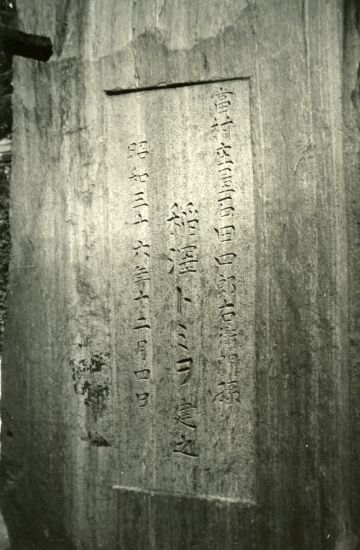 當村庄屋石田四郎右衛門孫
稲澤トミヲ建之
昭和三十六年十二月四日